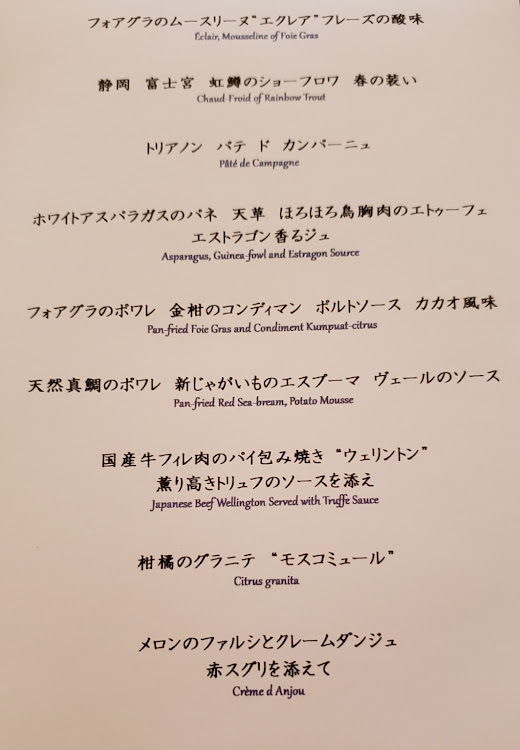 フォアグラのムースリーヌ“エクレア”フレーズの酸味
Éclair, Mousseline of Foie Gras
静岡 富士宮 虹鱒のショーフロワ 春の装い
Chaud-Froid of Rainbow Trout
トリアノン パテ ド カンパーニュ
Pâté de Campagne
ホワイトアスパラガスのパネ 天草 ほろほろ鳥胸肉のエトゥーフェ
エストラゴン香るジュ
Asparagus, Guinea-fowl and Estragon Source
フォアグラのポワレ 金柑のコンディマン ポルトソース カカオ風味
Pan-fried Foie Gras and Condiment Kumpuat-citrus
天然真鯛のポワレ 新じゃがいものエスプーマ ヴェールのソース
Pan-fried Red Sea-bream, Potato Mousse
国産牛フィレ肉のパイ包み焼き “ウェリントン”
薫り高きトリュフのソースを添え
Japanese Beef Wellington Served with Truffe Sauce
柑橘のグラニテ “モスコミュール”
Citrus granita
メロンのファルシとクレームダンジュ
赤スグリを添えて
Crème d Anjou